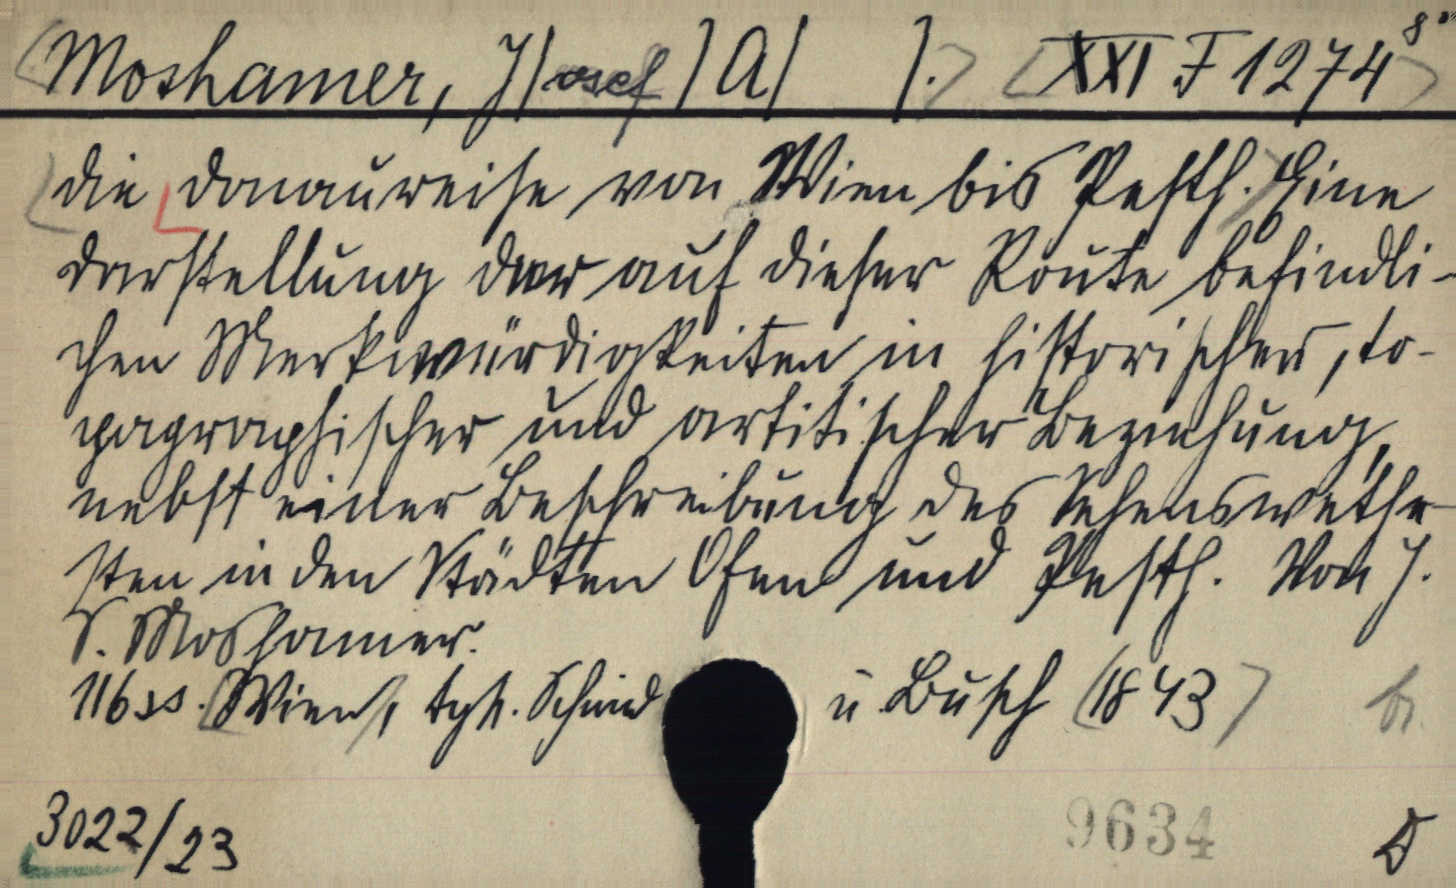 Moshamer, J[osef] A[ ]. XXI F 1274 8°
Die Donaureise von Wien bis Pesth. Eine
Darstellung der auf dieser Route befindli-
chen Merkwürdigkeiten in historischer, to-
pographischer und artitischer Beziehung,
nebst einer Beschreibung des Sehenswethe
sten in den Städten Ofen und Pesth. Von J.
S. Moshamer.
116 ss. Wien, typ. Schmid u Busch (1843)
3022/23
9634